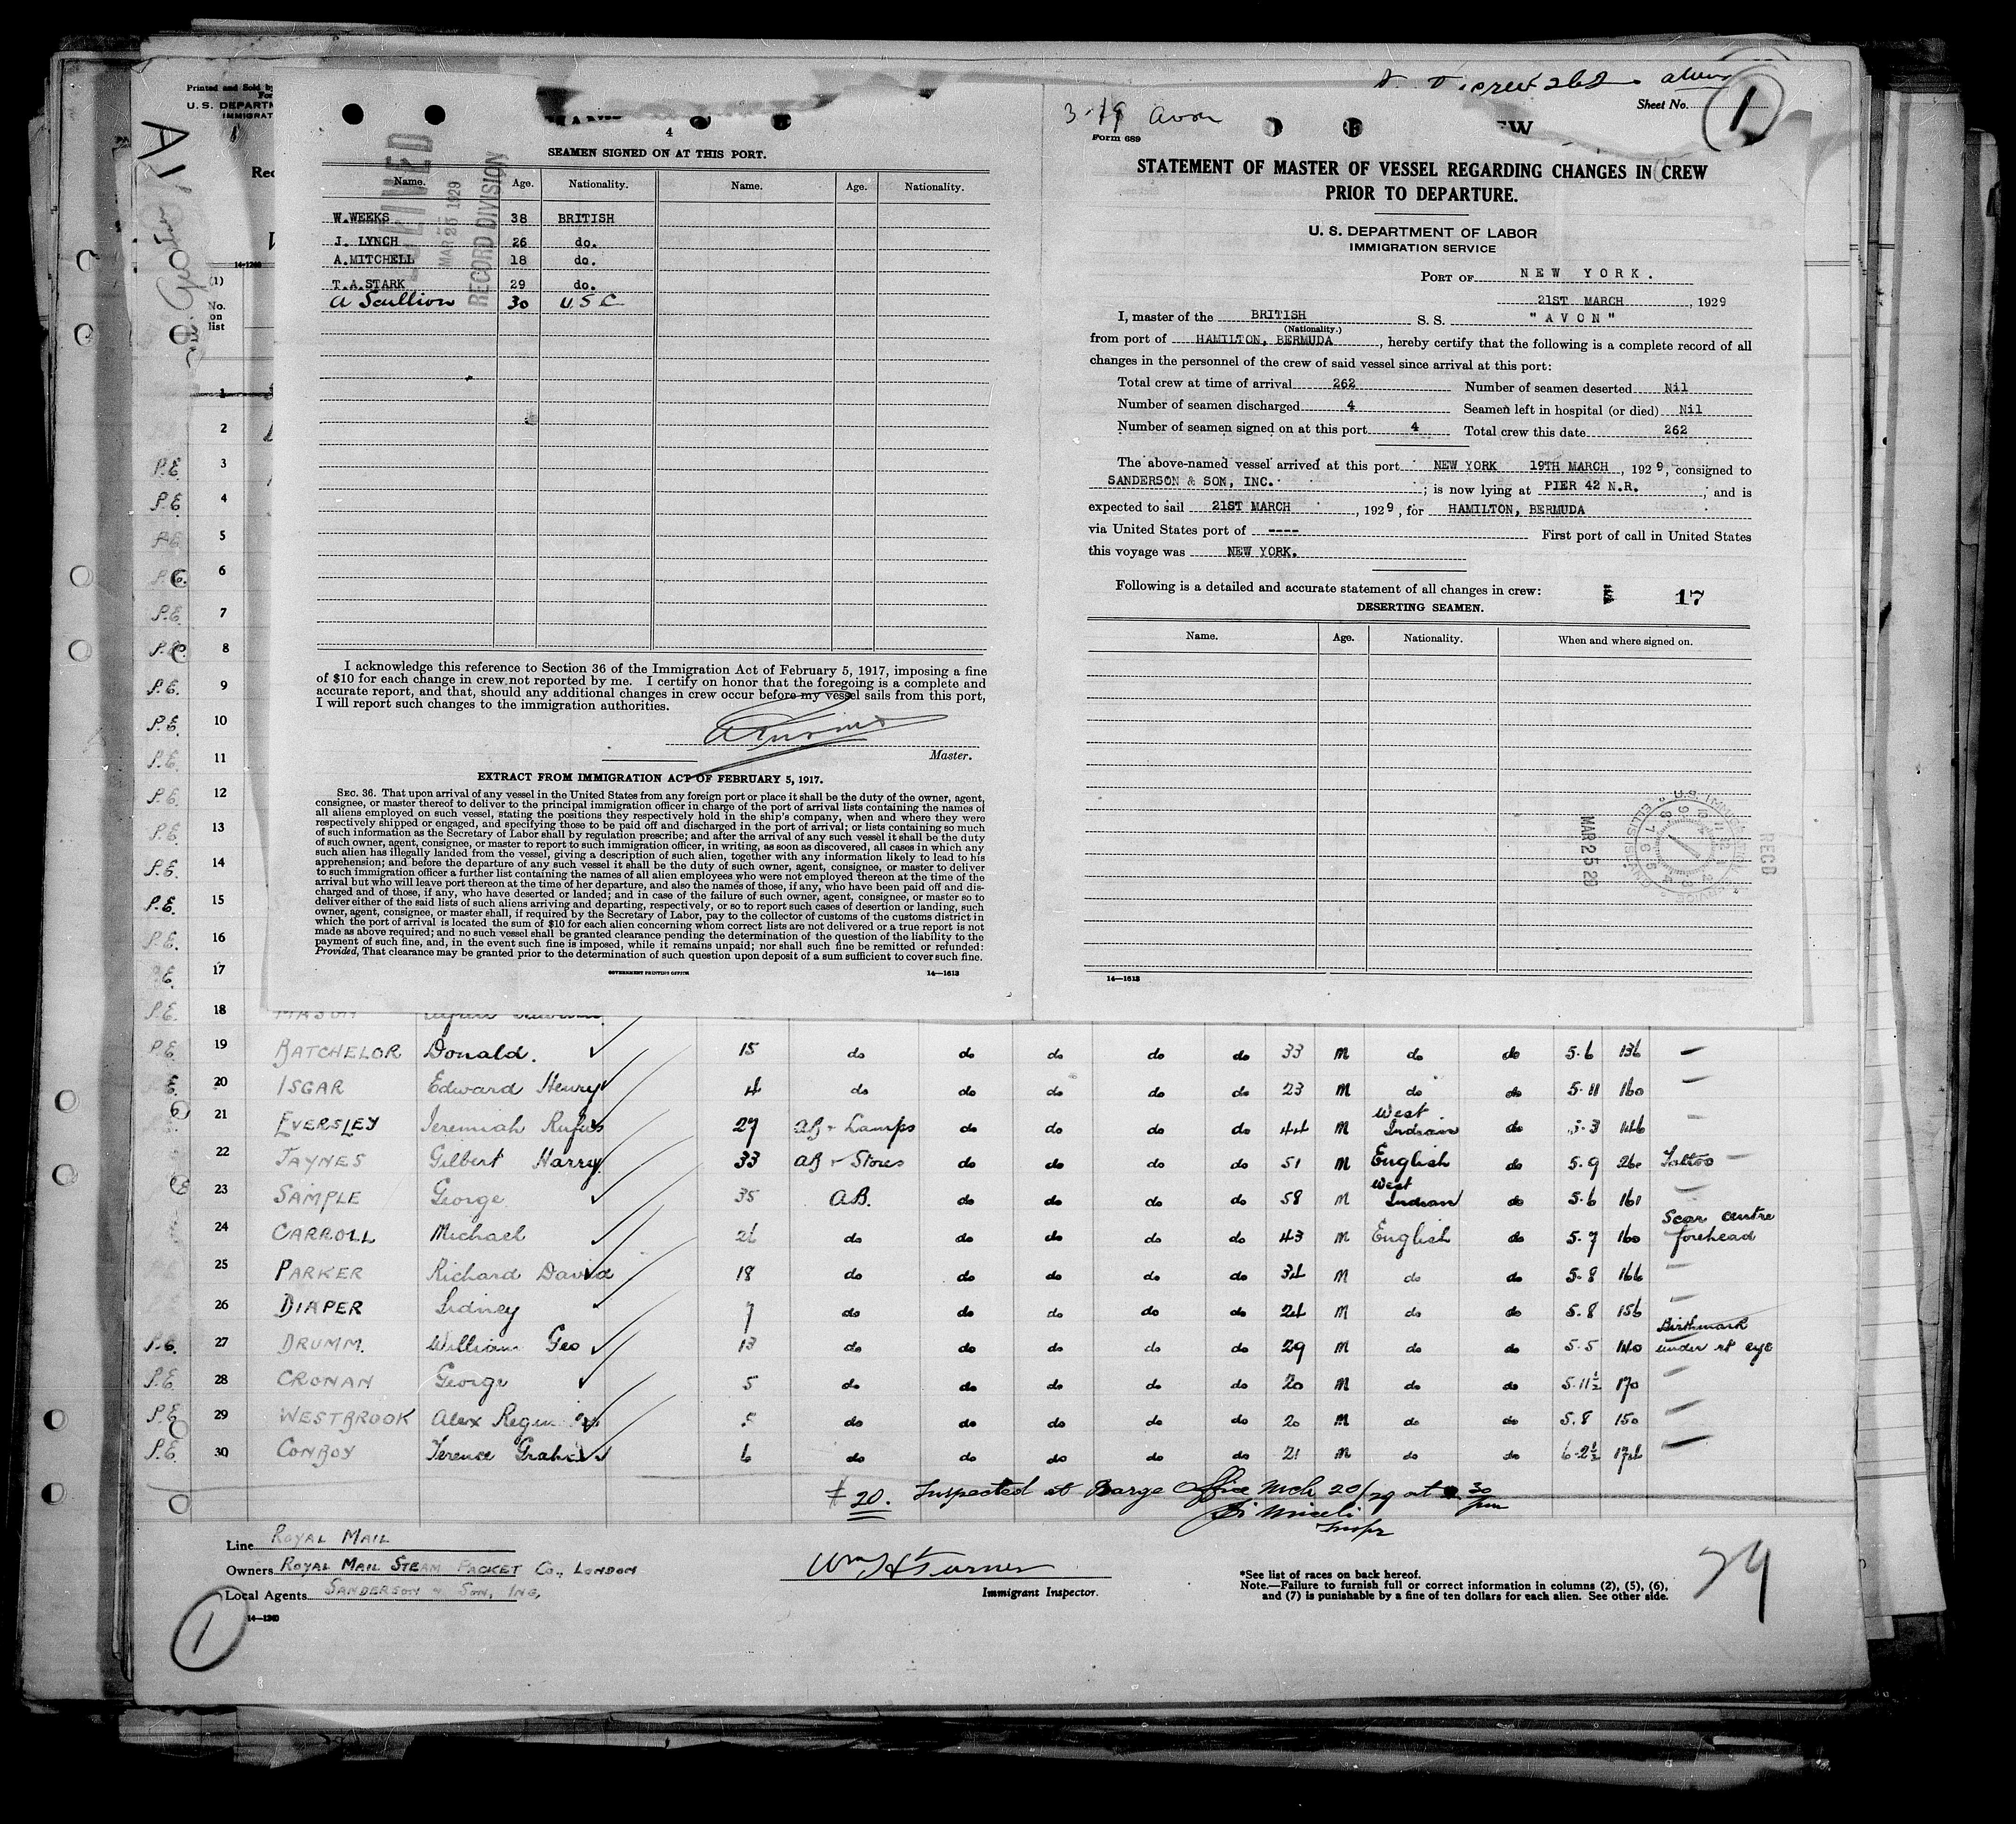 Printed and Sold by
U. S. DEPARTM
IMMIGRAT
4
SEAMEN SIGNED ON AT THIS PORT.
Name. Age. Nationality. Name. Age. Nationality.
W.WEEKS 38 BRITISH
J. LYNCH 26 do.
A.MITCHELL 18 do.
T.A.STARK 29 do.
A Scullion 30 U.S.C
MAR 25 1929
RECORD DIVISION
I acknowledge this reference to Section 36 of the Immigration Act of February 5, 1917, imposing a fine
of $10 for each change in crew not reported by me. I certify on honor that the foregoing is a complete and
accurate report, and that, should any additional changes in crew occur before my vessel sails from this port,
I will report such changes to the immigration authorities.
Master.
EXTRACT FROM IMMIGRATION ACT OF FEBRUARY 5, 1917.
SEC. 36. That upon arrival of any vessel in the United States from any foreign port or place it shall be the duty of the owner, agent,
consignee, or master thereof to deliver to the principal immigration officer in charge of the port of arrival lists containing the names of
all aliens employed on such vessel, stating the positions they respectively hold in the ship's company, when and where they were
respectively shipped or engaged, and specifying those to be paid off and discharged in the port of arrival; or lists containing so much
of such information as the Secretary of Labor shall by regulation prescribe; and after the arrival of any such vessel it shall be the duty
of such owner, agent, consignee, or master to report to such immigration officer, in writing, as soon as discovered, all cases in which any
such alien has illegally landed from the vessel, giving a description of such alien, together with any information likely to lead to his
apprehension; and before the departure of any such vessel it shall be the duty of such owner, agent, consignee, or master to deliver
to such immigration officer a further list containing the names of all alien employees who were not employed thereon at the time of the
arrival but who will leave port thereon at the time of her departure, and also the names of those, if any, who have been paid off and dis-
charged and of those, if any, who have deserted or landed; and in case of the failure of such owner, agent, consignee, or master so to
deliver either of the said lists of such aliens arriving and departing, respectively, or so to report such cases of desertion or landing, such
owner, agent, consignee, or master shall, if required by the Secretary of Labor, pay to the collector of customs of the customs district in
which the port of arrival is located the sum of $10 for each alien concerning whom correct lists are not delivered or a true report is not
made as above required; and no such vessel shall be granted clearance pending the determination of the question of the liability to the
payment of such fine, and, in the event such fine is imposed, while it remains unpaid; nor shall such fine be remitted or refunded:
Provided, That clearance may be granted prior to the determination of such question upon deposit of a sum sufficient to cover such fine.
GOVERNMENT PRINTING OFFICE 14—1613
Sheet No. 1
3-19 Avon
Form 689
STATEMENT OF MASTER OF VESSEL REGARDING CHANGES IN CREW
PRIOR TO DEPARTURE.
U. S. DEPARTMENT OF LABOR
IMMIGRATION SERVICE
PORT OF NEW YORK.
21ST MARCH, 1929
I, master of the BRITISH S. S. "AVON"
(Nationality.)
from port of HAMILTON, BERMUDA, hereby certify that the following is a complete record of all
changes in the personnel of the crew of said vessel since arrival at this port:
Total crew at time of arrival 262 Number of seamen deserted Nil
Number of seamen discharged 4 Seamen left in hospital (or died) Nil
Number of seamen signed on at this port 4 Total crew this date 262
The above-named vessel arrived at this port NEW YORK 19TH MARCH, 1929, consigned to
SANDERSON & SON, INC.; is now lying at PIER 42 N.R., and is
expected to sail 21ST MARCH, 1929, for HAMILTON, BERMUDA
via United States port of ---- First port of call in United States
this voyage was NEW YORK.
Following is a detailed and accurate statement of all changes in crew: 17
DESERTING SEAMEN.
Name. Age. Nationality. When and where signed on.
MAR 25 29
RECD
14—1613
14-1240
(1)
No.
on
list
1
2
P.E. 3
P.E. 4
P.E. 5
P.E. 6
P.E. 7
P.E. 8
P.E. 9
P.E. 10
P.E. 11
P.E. 12
P.E. 13
P.E. 14
P.E. 15
P.E. 16
P.E. 17
P.E. 18 MASON
P.E. 19 BATCHELOR Donald. 15 do do do do do 33 m do do 5.6 136 —
P.E. 20 ISGAR Edward Henry 4 do do do do do 23 m do do 5.11 160 —
21 EVERSLEY Jeremiah Rufus 27 AB + Lamps do do do do 44 m West Indian do 5.3 146 —
22 JAYNES Gilbert Harry 33 AB + Stores do do do do 51 m English do 5.9 260 Tattoo —
23 SAMPLE George 35 A.B. do do do do 58 m West Indian do 5.6 161 —
24 CARROLL Michael 26 do do do do do 43 m English do 5.7 160 Scar centre forehead
25 PARKER Richard David 18 do do do do do 34 m do do 5.8 166 —
26 DIAPER Sidney 7 do do do do do 24 m do do 5.8 156 —
P.E. 27 DRUMM. William Geo 13 do do do do do 29 m do do 5.5 140 Birthmark under rt eye
P.E. 28 CRONAN George 5 do do do do do 20 m do do 5.11½ 170 —
P.E. 29 WESTBROOK Alex 5 do do do do do 20 m do do 5.8 150 —
P.E. 30 CONBOY Terence Graham 6 do do do do do 21 m do do 6-2½ 174 —
# 20. Inspected at Barge Office Mch 20/29 at 30 pm
Inspr
Line ROYAL MAIL
Owners ROYAL MAIL STEAM PACKET CO., LONDON
Local Agents SANDERSON & SON, INC,
14—1240
Wm H Turner
Immigrant Inspector.
*See list of races on back hereof.
Note.—Failure to furnish full or correct information in columns (2), (5), (6),
and (7) is punishable by a fine of ten dollars for each alien. See other side.
1